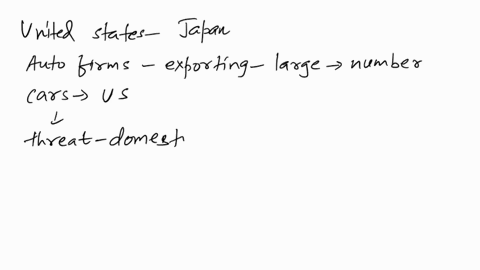 United states - Japan
Auto firms - exporting - large → number
cars → US
↓
threat - domest